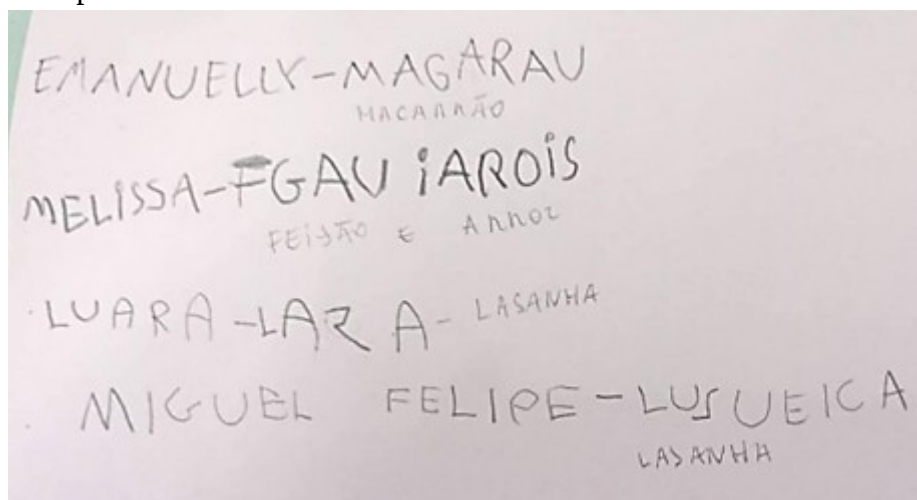 EMANUELLY-MAGARAU
MACARRÃO
MELISSA-FGAU iAROIS
FEIJÃO E ARROZ
LUARA-LAZA-LASANHA
MIGUEL FELIPE-LUSUEICA
LASANHA